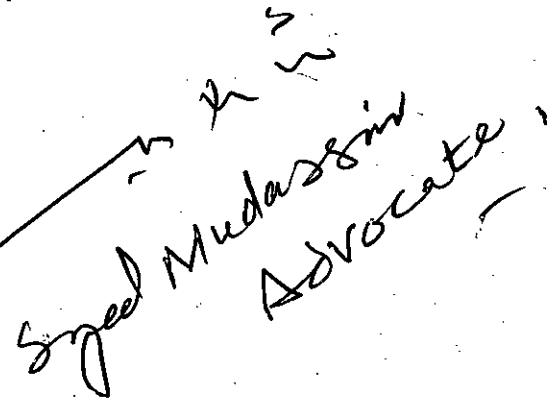 Syed Mudassir
Advocate